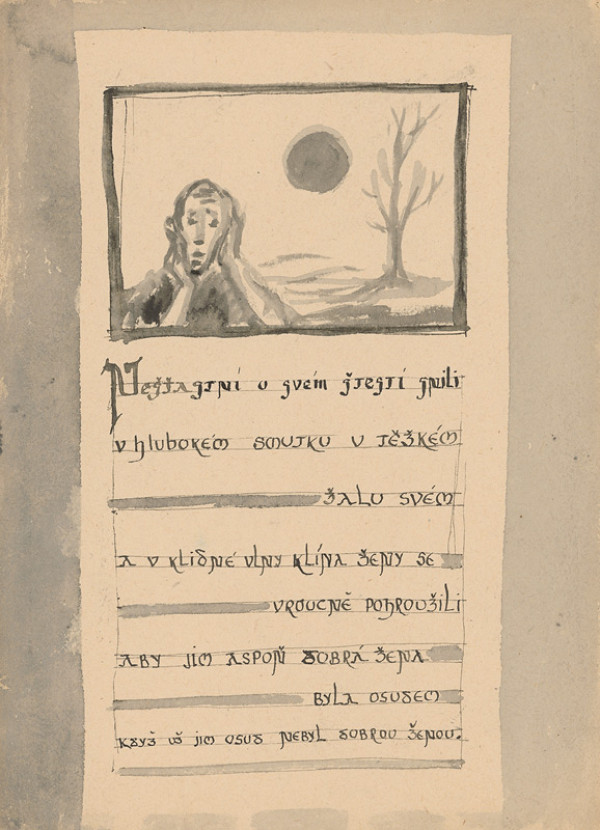 Nešťastní o svém štestí snili
v hlubokém smutku v těžkém
žalu svém
a v klidné vlny klína ženy se
vroucně pohroužili
aby jim aspoň dobrá žena
byla osudem
když už jim osud nebyl dobrou ženou.